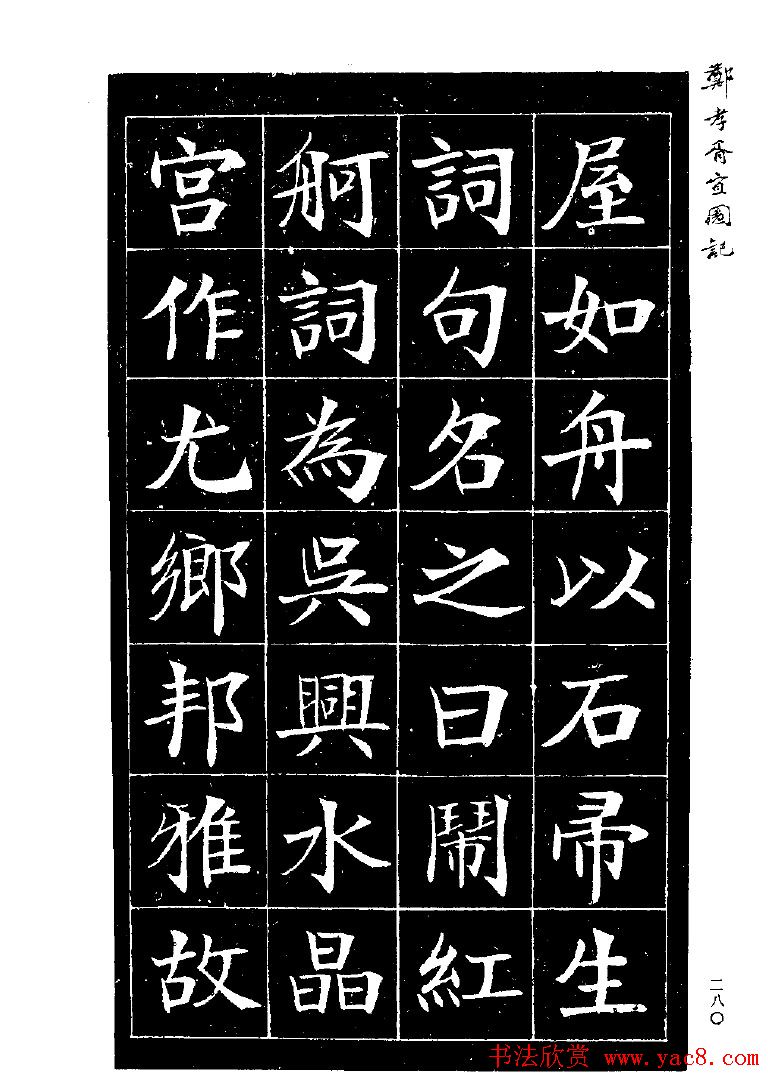 鄭孝胥宜園記
屋如舟以石帚生
詞句名之曰鬧紅
舸詞為吳興水晶
宮作尤鄉邦雅故
二八〇
书法欣赏 www.yac8.com